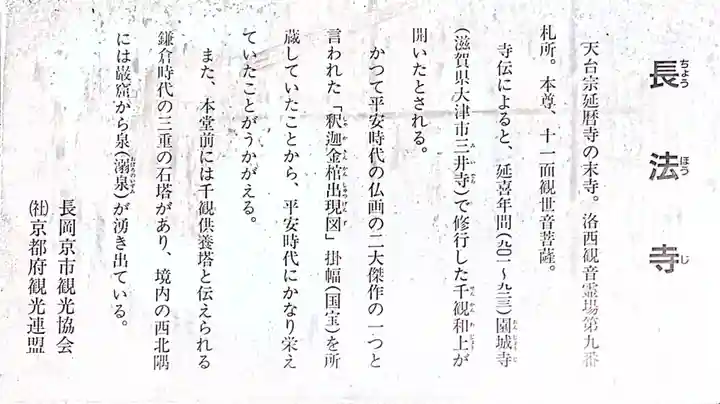 長法寺
天台宗延暦寺の末寺。洛西観音霊場第九番
札所。本尊、十一面観世音菩薩。
寺伝によると、延喜年間(九〇一〜九二三)園城寺
(滋賀県大津市三井寺)で修行した千観和上が
開いたとされる。
かつて平安時代の仏画の二大傑作の一つと
言われた「釈迦金棺出現図」掛幅(国宝)を所
蔵していたことから、平安時代にかなり栄え
ていたことがうかがえる。
また、本堂前には千観供養塔と伝えられる
鎌倉時代の三重の石塔があり、境内の西北隅
には巌窟から泉(溺泉)が湧き出ている。
長岡京市観光協会
㈳京都府観光連盟